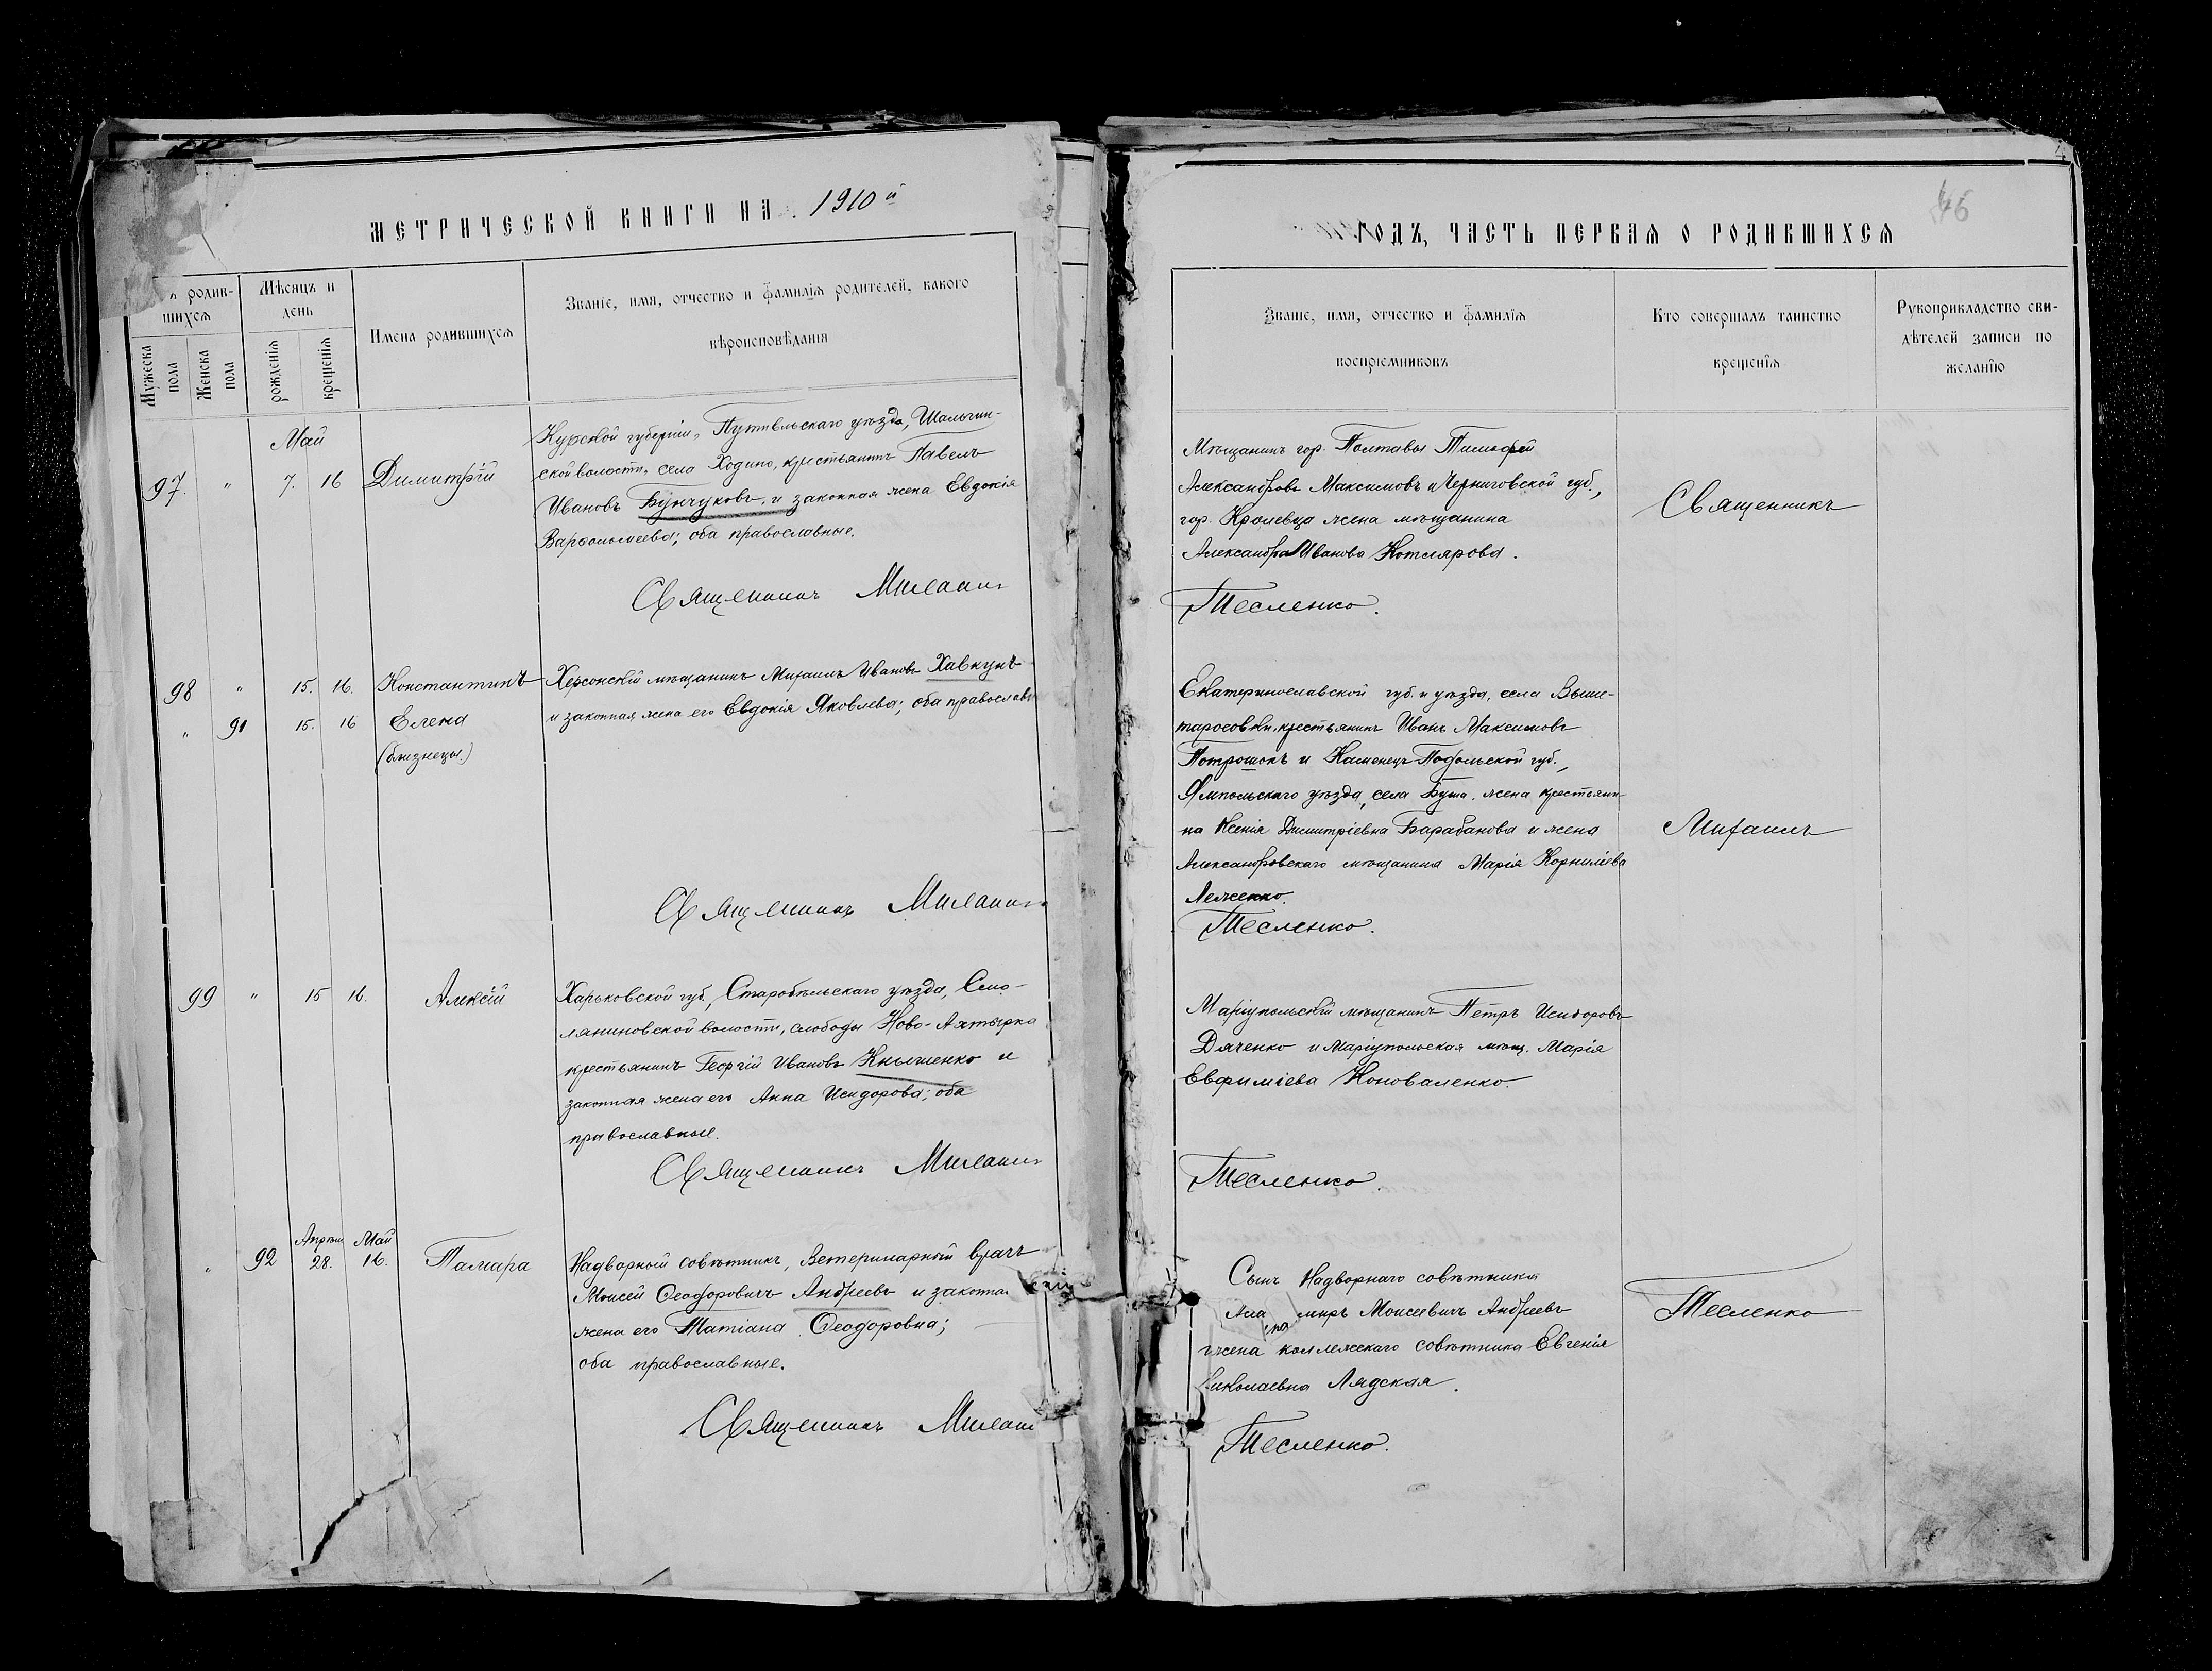 МЕТРИЧЕСКОЙ КНИГИ НА 1910й
родив-
шихся
Мужеска
пола
Женска
пола
Мѣсяцъ и
день
рожденія
крещенія
Имена родившихся
Званіе, имя, отчество и фамилія родителей, какого
вѣроисповѣданія
97. " Май 7. 16 Димитрій
Курской губерніи, Путивльскаго уѣзда, Шалыгин-
ской волости, села Ходино, крестьянинъ Павелъ
Ивановъ Бунчуковъ, и законная жена Евдокія
Варѳоломеева; оба православные.
Священникъ Михаилъ
98 " 15. 16. Константинъ
" 91 15. 16 Елена
(близнецы.)
Херсонскій мѣщанинъ Михаилъ Ивановъ Хавкунъ
и законная жена его Евдокія Яковлева; оба православн
Священникъ Михаилъ
99 " 15 16. Алексій
Харьковской губ., Старобѣльскаго уѣзда, Смо-
ляниновской волости, слободы Ново-Ахтырка
крестьянинъ Георгій Ивановъ Кнышенко и
законная жена его Анна Исидорова; оба
православные.
Священникъ Михаилъ
" 92 Апрѣля 28. Май 16. Тамара
Надворный совѣтникъ, Ветеринарный врачъ
Моисей Ѳеодоровичъ Андреевъ и законная
жена его Татіана Ѳеодоровна;
оба православные.
Священникъ Михаилъ
46
ГОДЪ, ЧАСТЬ ПЕРВАЯ О РОДИВШИХСЯ
Званіе, имя, отчество и фамилія
воспріемниковъ
Кто совершалъ таинство
крещенія
Рукоприкладство сви-
дѣтелей записи по
желанію
Мѣщанинъ гор. Полтавы Тимофей
Александровъ Максимовъ и Черниговской губ.,
гор. Кролевца жена мѣщанина
Александра Иванова Котлярова.
Тесленко.
Екатеринославской губ. и уѣзда, села Выше-
тарасовки, крестьянинъ Иванъ Максимовъ
Потрошокъ и Каменецъ-Подольской губ.,
Ямпольскаго уѣзда, села Буша, жена крестьяни-
на Ксенія Димитріевна Барабанова и жена
Александровскаго мѣщанина Марія Корниліева
Лежченко.
Тесленко.
Маріупольскій мѣщанинъ Петръ Исидоровъ
Дяченко и Маріупольская мѣщ. Марія
Евфиміева Коноваленко.
Тесленко.
Сынъ Надворнаго совѣтника
миръ Моисеевичъ Андреевъ
и жена коллежскаго совѣтника Евгенія
Николаевна Лядская.
Тесленко.
Священникъ
Михаилъ
Тесленко